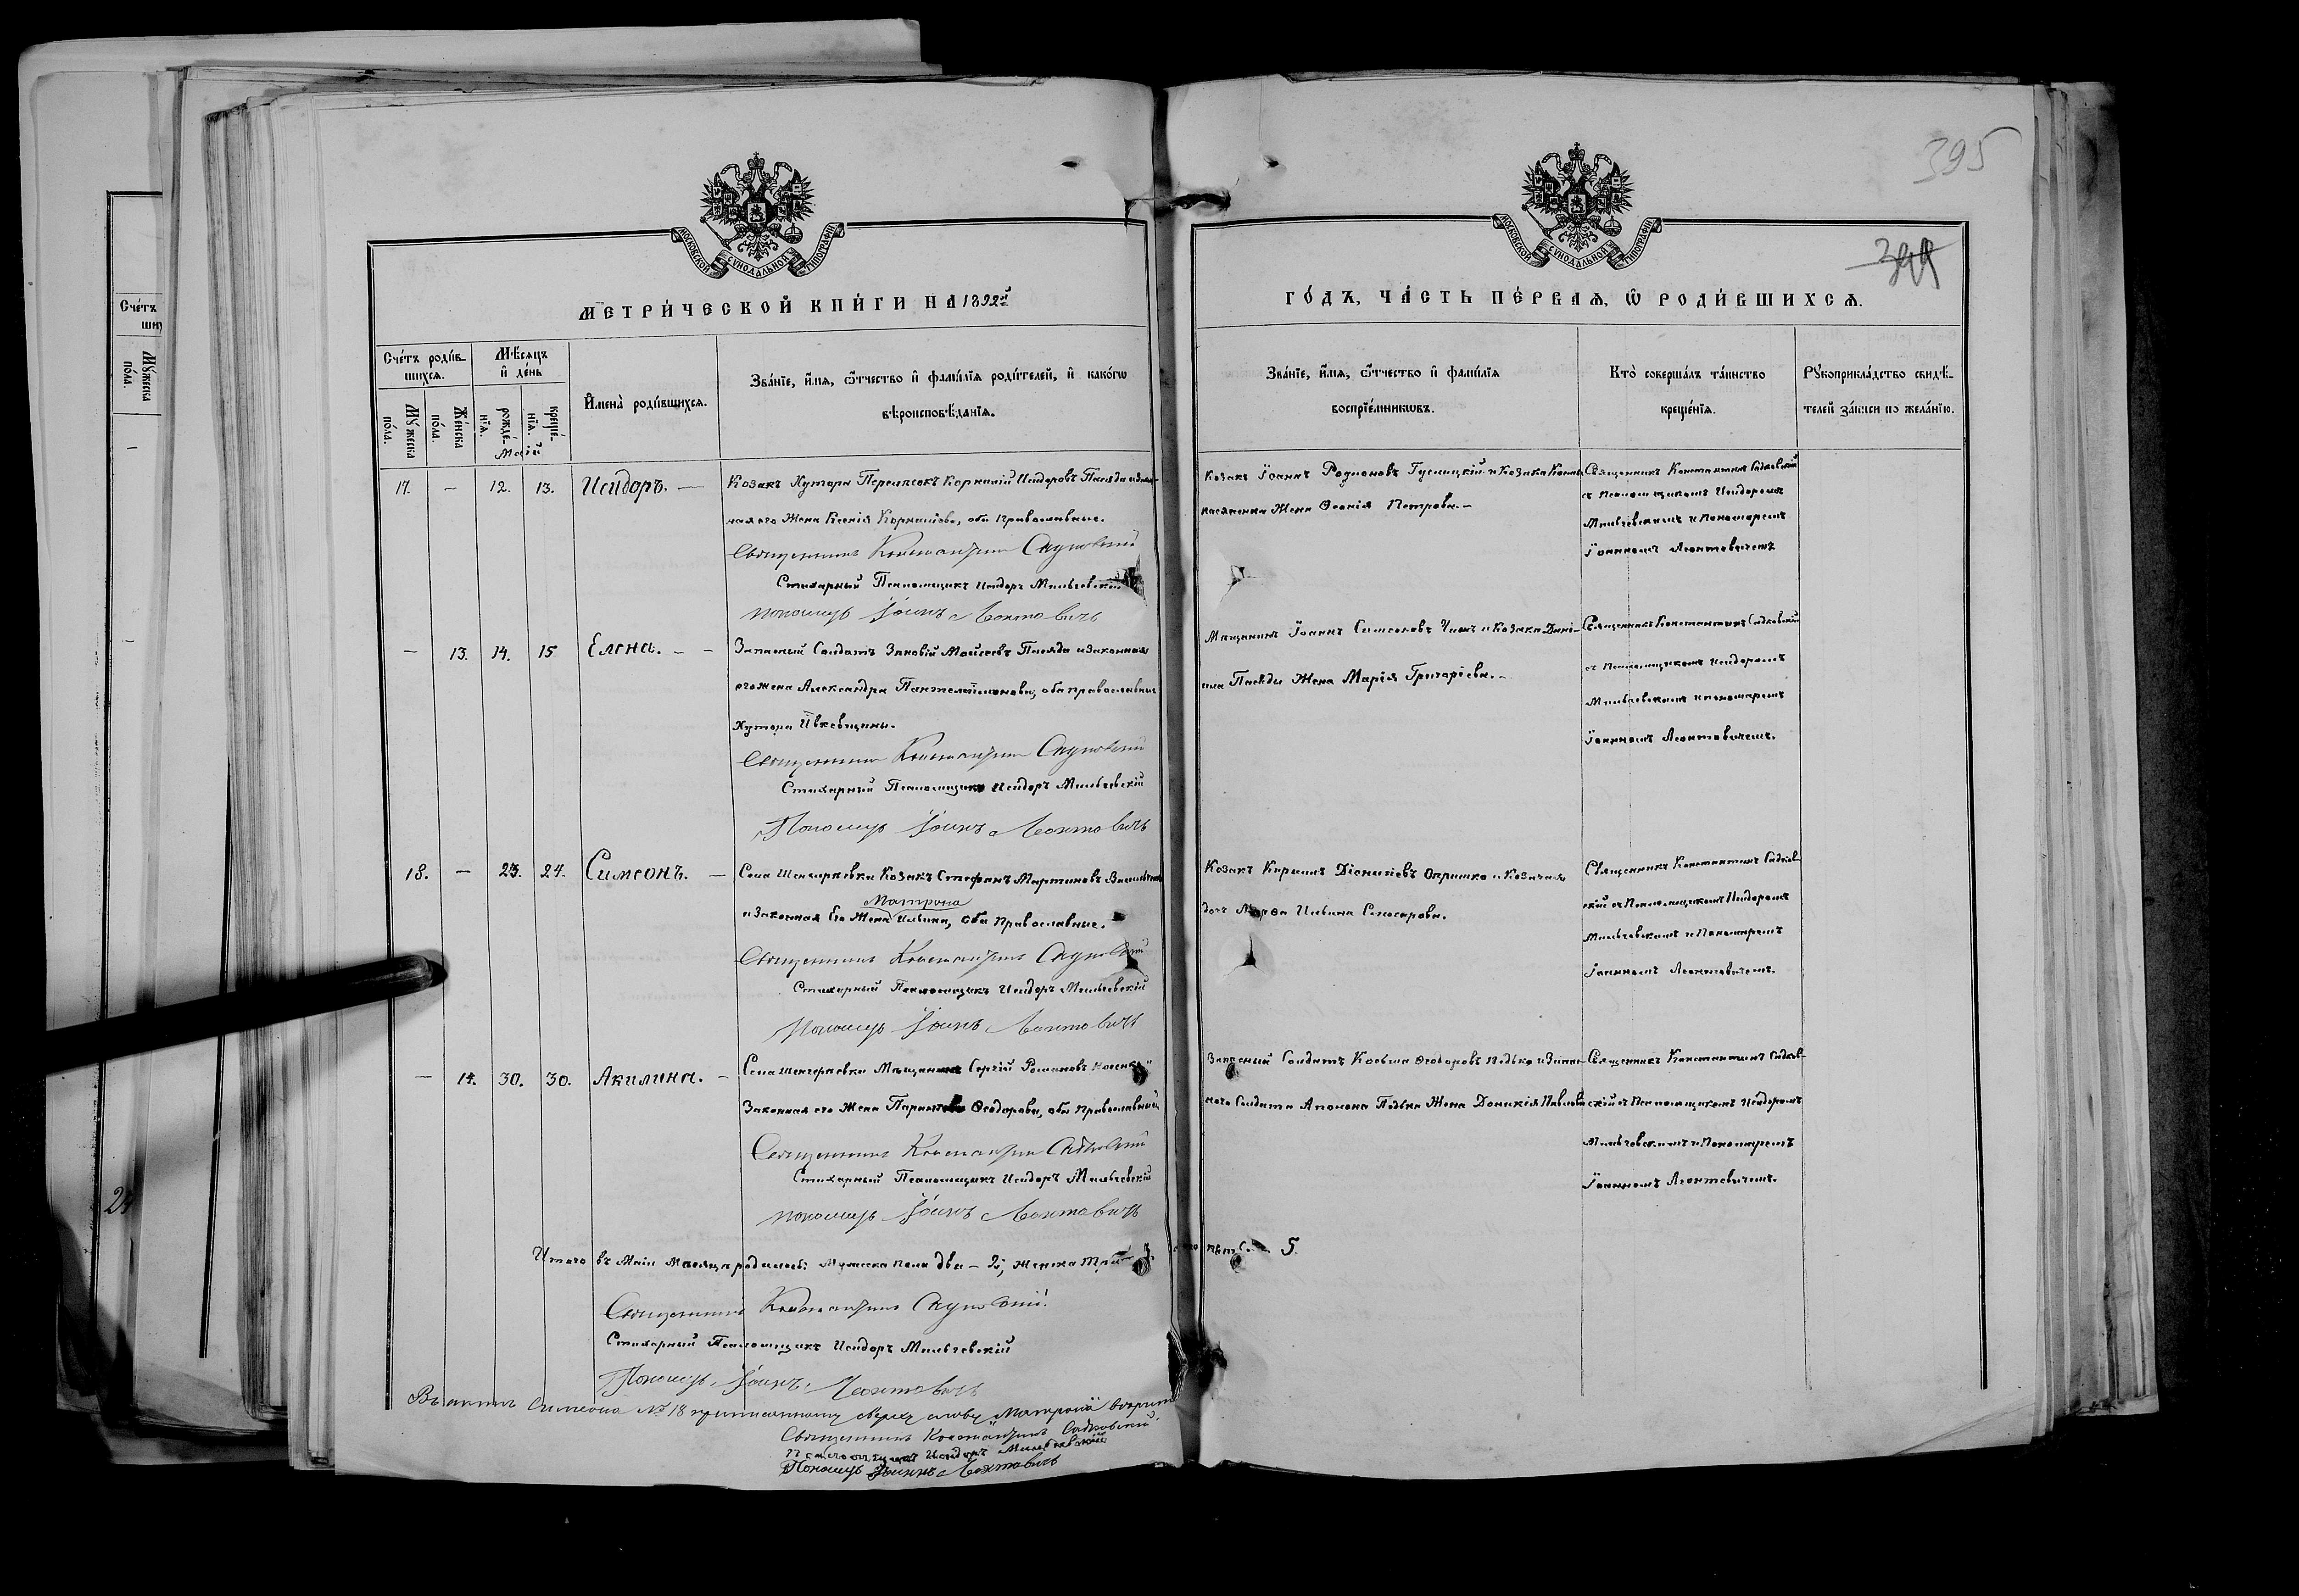 395
МОСКОВСКОЙ СѴНОДАЛЬНОЙ ТИПОГРАФІИ
МОСКОВСКОЙ СѴНОДАЛЬНОЙ ТИПОГРАФІИ
МЕТРИ́ЧЕСКОЙ КНИ́ГИ НА 1892й
ГО́ДЪ, ЧА́СТЬ ПЕ́РВАѦ, Ѡ҆ РОДИ́ВШИХСѦ.
Сче́тъ роди́в-
шихсѧ.
Мѣ́сѧцъ
и҆ де́нь
И҆мена̀ роди́вшихсѧ.
Зва́нїе, и҆́мѧ, ѻ҆́тчество и҆ фамі́лїѧ роди́телей, и҆ како́гѡ
вѣроисповѣ́данїѧ.
Зва́нїе, и҆́мѧ, ѻ҆́тчество и҆ фамі́лїѧ
воспрїе́мникѡвъ.
Кто̀ соверша́лъ та́инство
креще́нїѧ.
Рꙋкоприкла́дство свидѣ́-
телей за́писи по жела́нїю.
Мꙋ́жеска по́ла.
Же́нска по́ла.
рожде́-нїѧ.
креще́-нїѧ.
Маій
17. — 12. 13. Исидоръ. — Козакъ Хутора Корнилій Исидоровъ Пасяда и закон-
ная его Жена Ксенія Корниліева, оба Православные.
Священникъ Константинъ Садковскій
Стихарный Псаломщикъ Исидоръ Мильчевскій
Пономарь Іоаннъ Леонтовичъ
Козакъ Іоаннъ Родионовъ и Козака
Жена Ѳеонія Петрова.—
Священникъ Константинъ Садковскій
съ Псаломщикомъ Исидоромъ
Мильчевскимъ и Пономаремъ
Іоанномъ Леонтовичемъ
— 13. 14. 15 Елена. — — Запасный Солдатъ Зиновій Моисеевъ Пасяда и законная
его жена Александра Пантелеимонова, оба православные
Хутора Ивковщины.
Священникъ Константинъ Садковскій
Стихарный Псаломщикъ Исидоръ Мильчевскій
Пономарь Іоаннъ Леонтовичъ
Мѣщанинъ Іоаннъ Симеоновъ и Козака Дані-
ила Пасяды Жена Марія Григоріева.—
Священникъ Константинъ Садковскій
съ Псаломщикомъ Исидоромъ
Мильчевскимъ и пономаремъ
Іоанномъ Леонтовичемъ.
18. — 23. 24. Симеонъ. — Села Шенгарѣевки Козакъ Стефанъ Мартиновъ
Матрона
и Законная Его Жена Ильина, оба Православные.
Священникъ Константинъ Садковскій
Стихарный Псаломщикъ Исидоръ Мильчевскій
Пономарь Іоаннъ Леонтовичъ
Козакъ Кириллъ Діонисіевъ Опришко и Козачая
дочь Марѳа Ильина Слюсарова.
Священникъ Константинъ Садков-
скій съ Псаломщикомъ Исидоромъ
Мильчевскимъ и Пономаремъ
Іоанномъ Леонтовичемъ.
— 14. 30. 30. Акилина. — Села Шенгарѣевки Мѣщанинъ Сергій Романовъ
Законная его Жена Ѳеодорова, оба Православные
Священникъ Константинъ Садковскій
Стихарный Псаломщикъ Исидоръ Мильчевскій
Пономарь Іоаннъ Леонтовичъ
Запасный Солдатъ Косьма Ѳеодоровъ Педько и Запас-
наго Солдата Педька Жена Доникія Павлова
Священникъ Константинъ Садков-
скій съ Псаломщикомъ Исидоромъ
Мильчевскимъ и Пономаремъ
Іоанномъ Леонтовичемъ.
Итого въ Маіи Мѣсяцѣ родилось: Мужеска пола два — 2; Женска три — 3. 5.
Священникъ Константинъ Садковскій.
Стихарный Псаломщикъ Исидоръ Мильчевскій
Пономарь Іоаннъ Леонтовичъ
Въ актѣ Симеона №18 приписанному сверху слову „Матрона"
Священникъ Константинъ Садковскій
Псаломщикъ Исидоръ Мильчевскій
Пономарь Іоаннъ Леонтовичъ